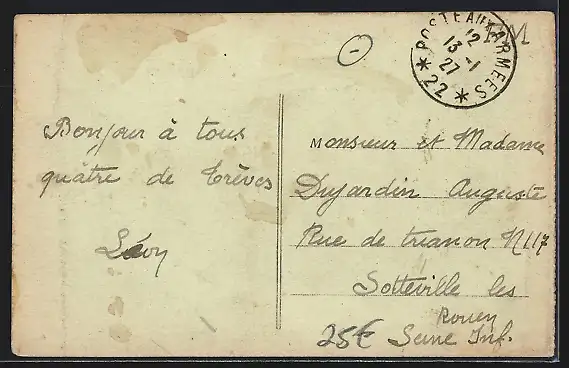 POSTE AUX ARMEES
* 22 *
12
13 -1
27
FM
Bonjour à tous
quâtre de Trèves
Monsieur et Madame
Dujardin Auguste
Rue de trianon N 117
Sotteville les
Rouen
Seine Inf.
25€